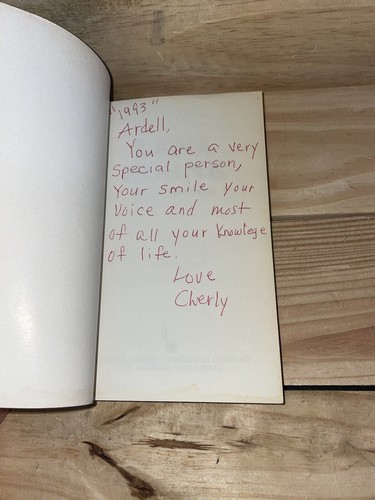 "1993"
Ardell,
You are a very
special person,
Your smile your
voice and most
of all your Knowlege
of life.
Love
Cherly